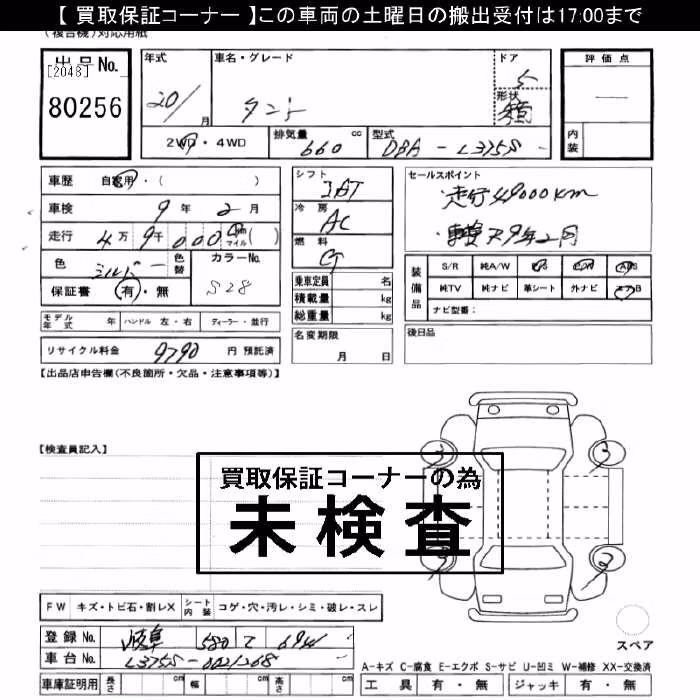 【 買取保証コーナー 】この車両の土曜日の搬出受付は17:00まで
(複合機)対応用紙
出品 No.
[2048]
80256
年式
20/
月
車名・グレード
タント
ドア
5
形状
評価点
—
内装
2WD・4WD
排気量
660
cc
型式
DBA - L375S
車歴 自家用・( )
車検 9年 2月
走行 4万 9千 000 Km マイル ( )
色 シルバー 色替
カラーNo. S28
保証書 有・無
シフト
IAT
冷房
AC
燃料
乗車定員 名
積載量 kg
総重量 kg
セールスポイント
・走行49000km
装備品
S/R 純A/W P/S P/W ABS
純TV 純ナビ 革シート 外ナビ エアB
ナビ型番:
モデル年式 年 ハンドル 左・右 ディーラー・並行
リサイクル料金 9790 円 預託済
名変期限
月 日
後日品
【出品店申告欄(不良箇所・欠品・注意事項等)】
【検査員記入】
買取保証コーナーの為
未検査
3
3
2
2
FW キズ・トビ石・割レX シート内装 コゲ・穴・汚レ・シミ・破レ・スレ
登録 No. 岐阜 580
車台 No. L375S-0021268
スペア
車庫証明用 長さ cm 幅 cm 高さ cm
A-キズ C-腐食 E-エクボ S-サビ U-凹ミ W-補修 XX-交換済
工具 有・無 ジャッキ 有・無